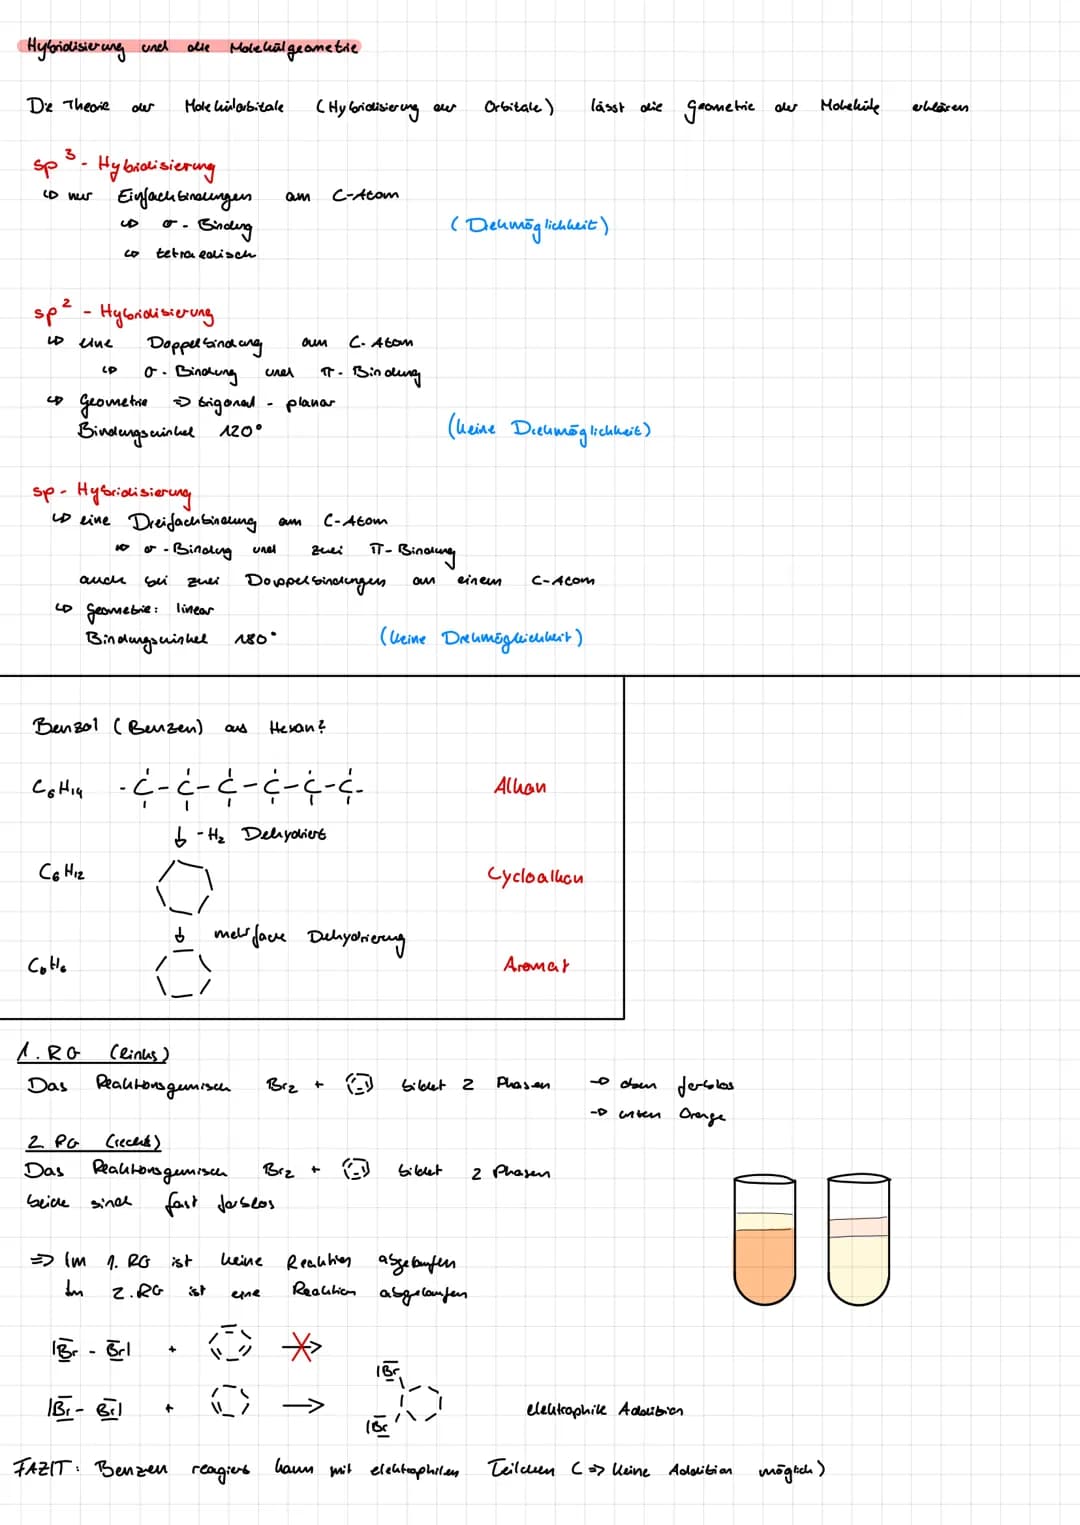 Hybridisierung und die Molekülgeometrie
Die Theorie der Molekülorbitale (Hybridisierung der Orbitale) lässt die Geometrie der Moleküle erklären
sp³ - Hybridisierung
↳ nur Einfachbindungen am C-Atom
↳ σ - Bindung (Drehmöglichkeit)
↳ tetraedrisch
sp² - Hybridisierung
↳ eine Doppelbindung am C-Atom
↳ σ - Bindung und π - Bindung
↳ Geometrie ⇒ trigonal - planar
Bindungswinkel 120° (keine Drehmöglichkeit)
sp - Hybridisierung
↳ eine Dreifachbindung am C-Atom
↳ σ - Bindung und zwei π - Bindung
auch bei zwei Doppelbindungen an einem C-Atom
↳ Geometrie: linear
Bindungswinkel 180° (keine Drehmöglichkeit)
Benzol (Benzen) aus Hexan?
C₆H₁₄ - C - C - C - C - C - C - Alkan
↓ - H₂ Dehydriert
C₆H₁₂ Cycloalkan
↓ mehrfache Dehydrierung
C₆H₆ Aromat
1. RG (links)
Das Reaktionsgemisch Br₂ + bildet 2 Phasen → oben farblos
→ unten Orange
2. RG (recht)
Das Reaktionsgemisch Br₂ + bildet 2 Phasen
beide sind fast farblos
⇒ Im 1. RG ist keine Reaktion abgelaufen
Im 2. RG ist eine Reaktion abgelaufen
|Br - Br| +
|Br
|Br - Br| + → elektrophile Addition
|Br
FAZIT: Benzen reagiert kaum mit elektrophilen Teilchen (⇒ keine Addition möglich)